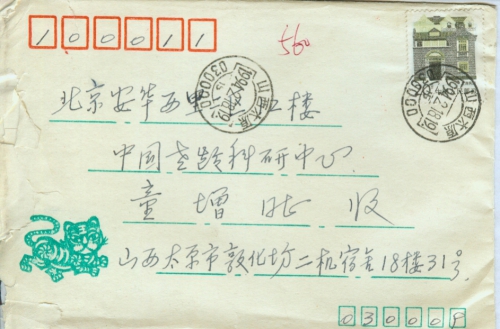 100011
560
北京安华西里 二楼
中国老龄科研中心
童增 收
山西太原市敦化坊二机宿舍18楼31号
030009
山西太原
030000
山西太原
030000